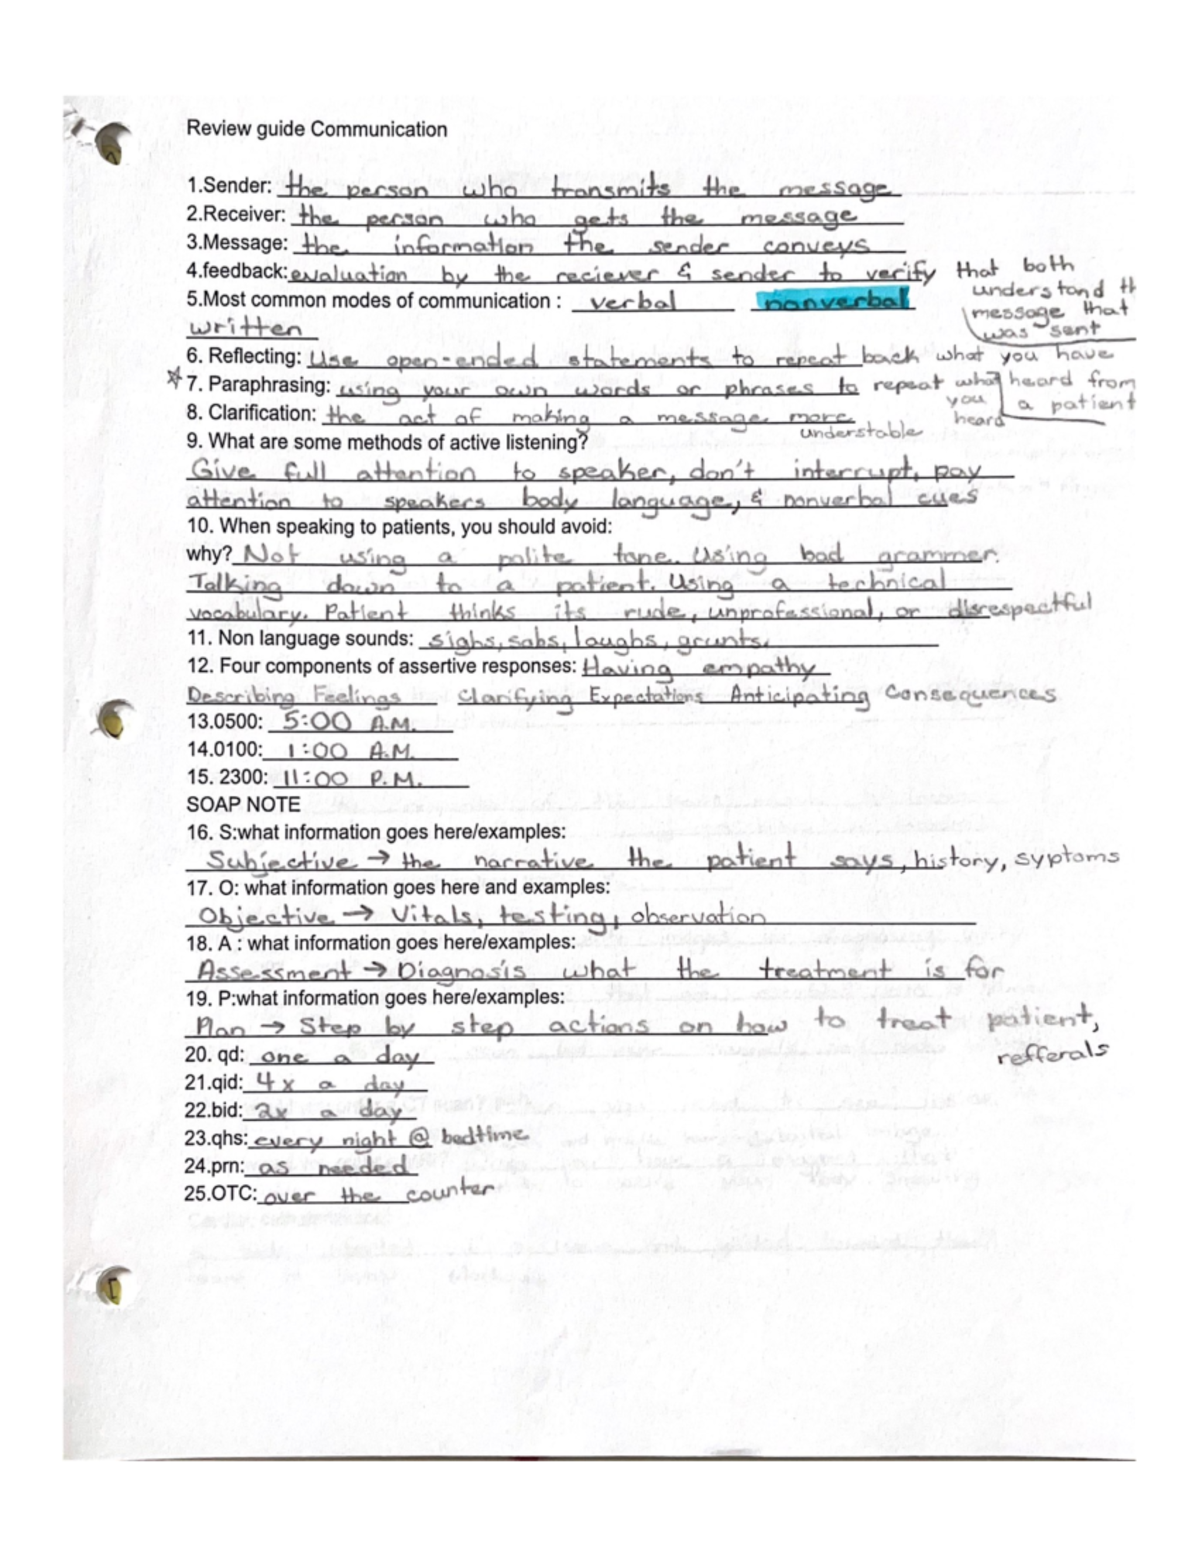 Review guide Communication
1.Sender: the person who transmits the message
2.Receiver: the person who gets the message
3.Message: the information the sender conveys
4.feedback: evaluation by the reciever & sender to verify that both
understand th
message that
was sent
5.Most common modes of communication : verbal nonverbal
written
6. Reflecting: Use open-ended statements to repeat back what you have
heard from
a patient
7. Paraphrasing: using your own words or phrases to repeat what
you
heard
8. Clarification: the act of making a message more
understable
9. What are some methods of active listening?
Give full attention to speaker, don't interrupt, pay
attention to speakers body language, & nonverbal cues
10. When speaking to patients, you should avoid:
why? Not using a polite tone. Using bad grammer.
Talking down to a patient. Using a technical
vocabulary. Patient thinks its rude, unprofessional, or disrespectful
11. Non language sounds: sighs, sobs, laughs, grunts.
12. Four components of assertive responses: Having empathy
Describing Feelings Clarifying Expectations Anticipating Consequences
13.0500: 5:00 A.M.
14.0100: 1:00 A.M.
15. 2300: 11:00 P.M.
SOAP NOTE
16. S:what information goes here/examples:
Subjective → the narrative the patient says, history, syptoms
17. O: what information goes here and examples:
Objective → Vitals, testing, observation
18. A : what information goes here/examples:
Assessment → Diagnosis what the treatment is for
19. P:what information goes here/examples:
Plan → Step by step actions on how to treat patient,
refferals
20. qd: one a day
21.qid: 4x a day
22.bid: 2x a day
23.qhs: every night @ bedtime
24.prn: as needed
25.OTC: over the counter